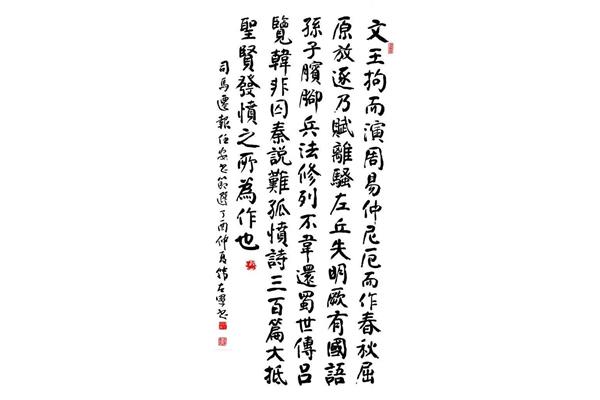 文王拘而演周易仲尼厄而作春秋屈
原放逐乃賦離騷左丘失明厥有國語
孫子臏腳兵法修列不韋遷蜀世傳呂
覽韓非囚秦說難孤憤詩三百篇大抵
聖賢發憤之所為作也
司馬遷報任安书節選丁酉仲夏